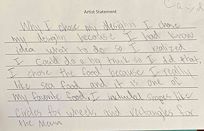 Artist Statement
Why I chose my design I chose
my design because I had know
idea what to do so I realized
I could do a big truck so I did that,
I chose the food because I really
like sea food and it is one
my favorite food, I included shapes like
circles for wheels and rectangles for
the Menu